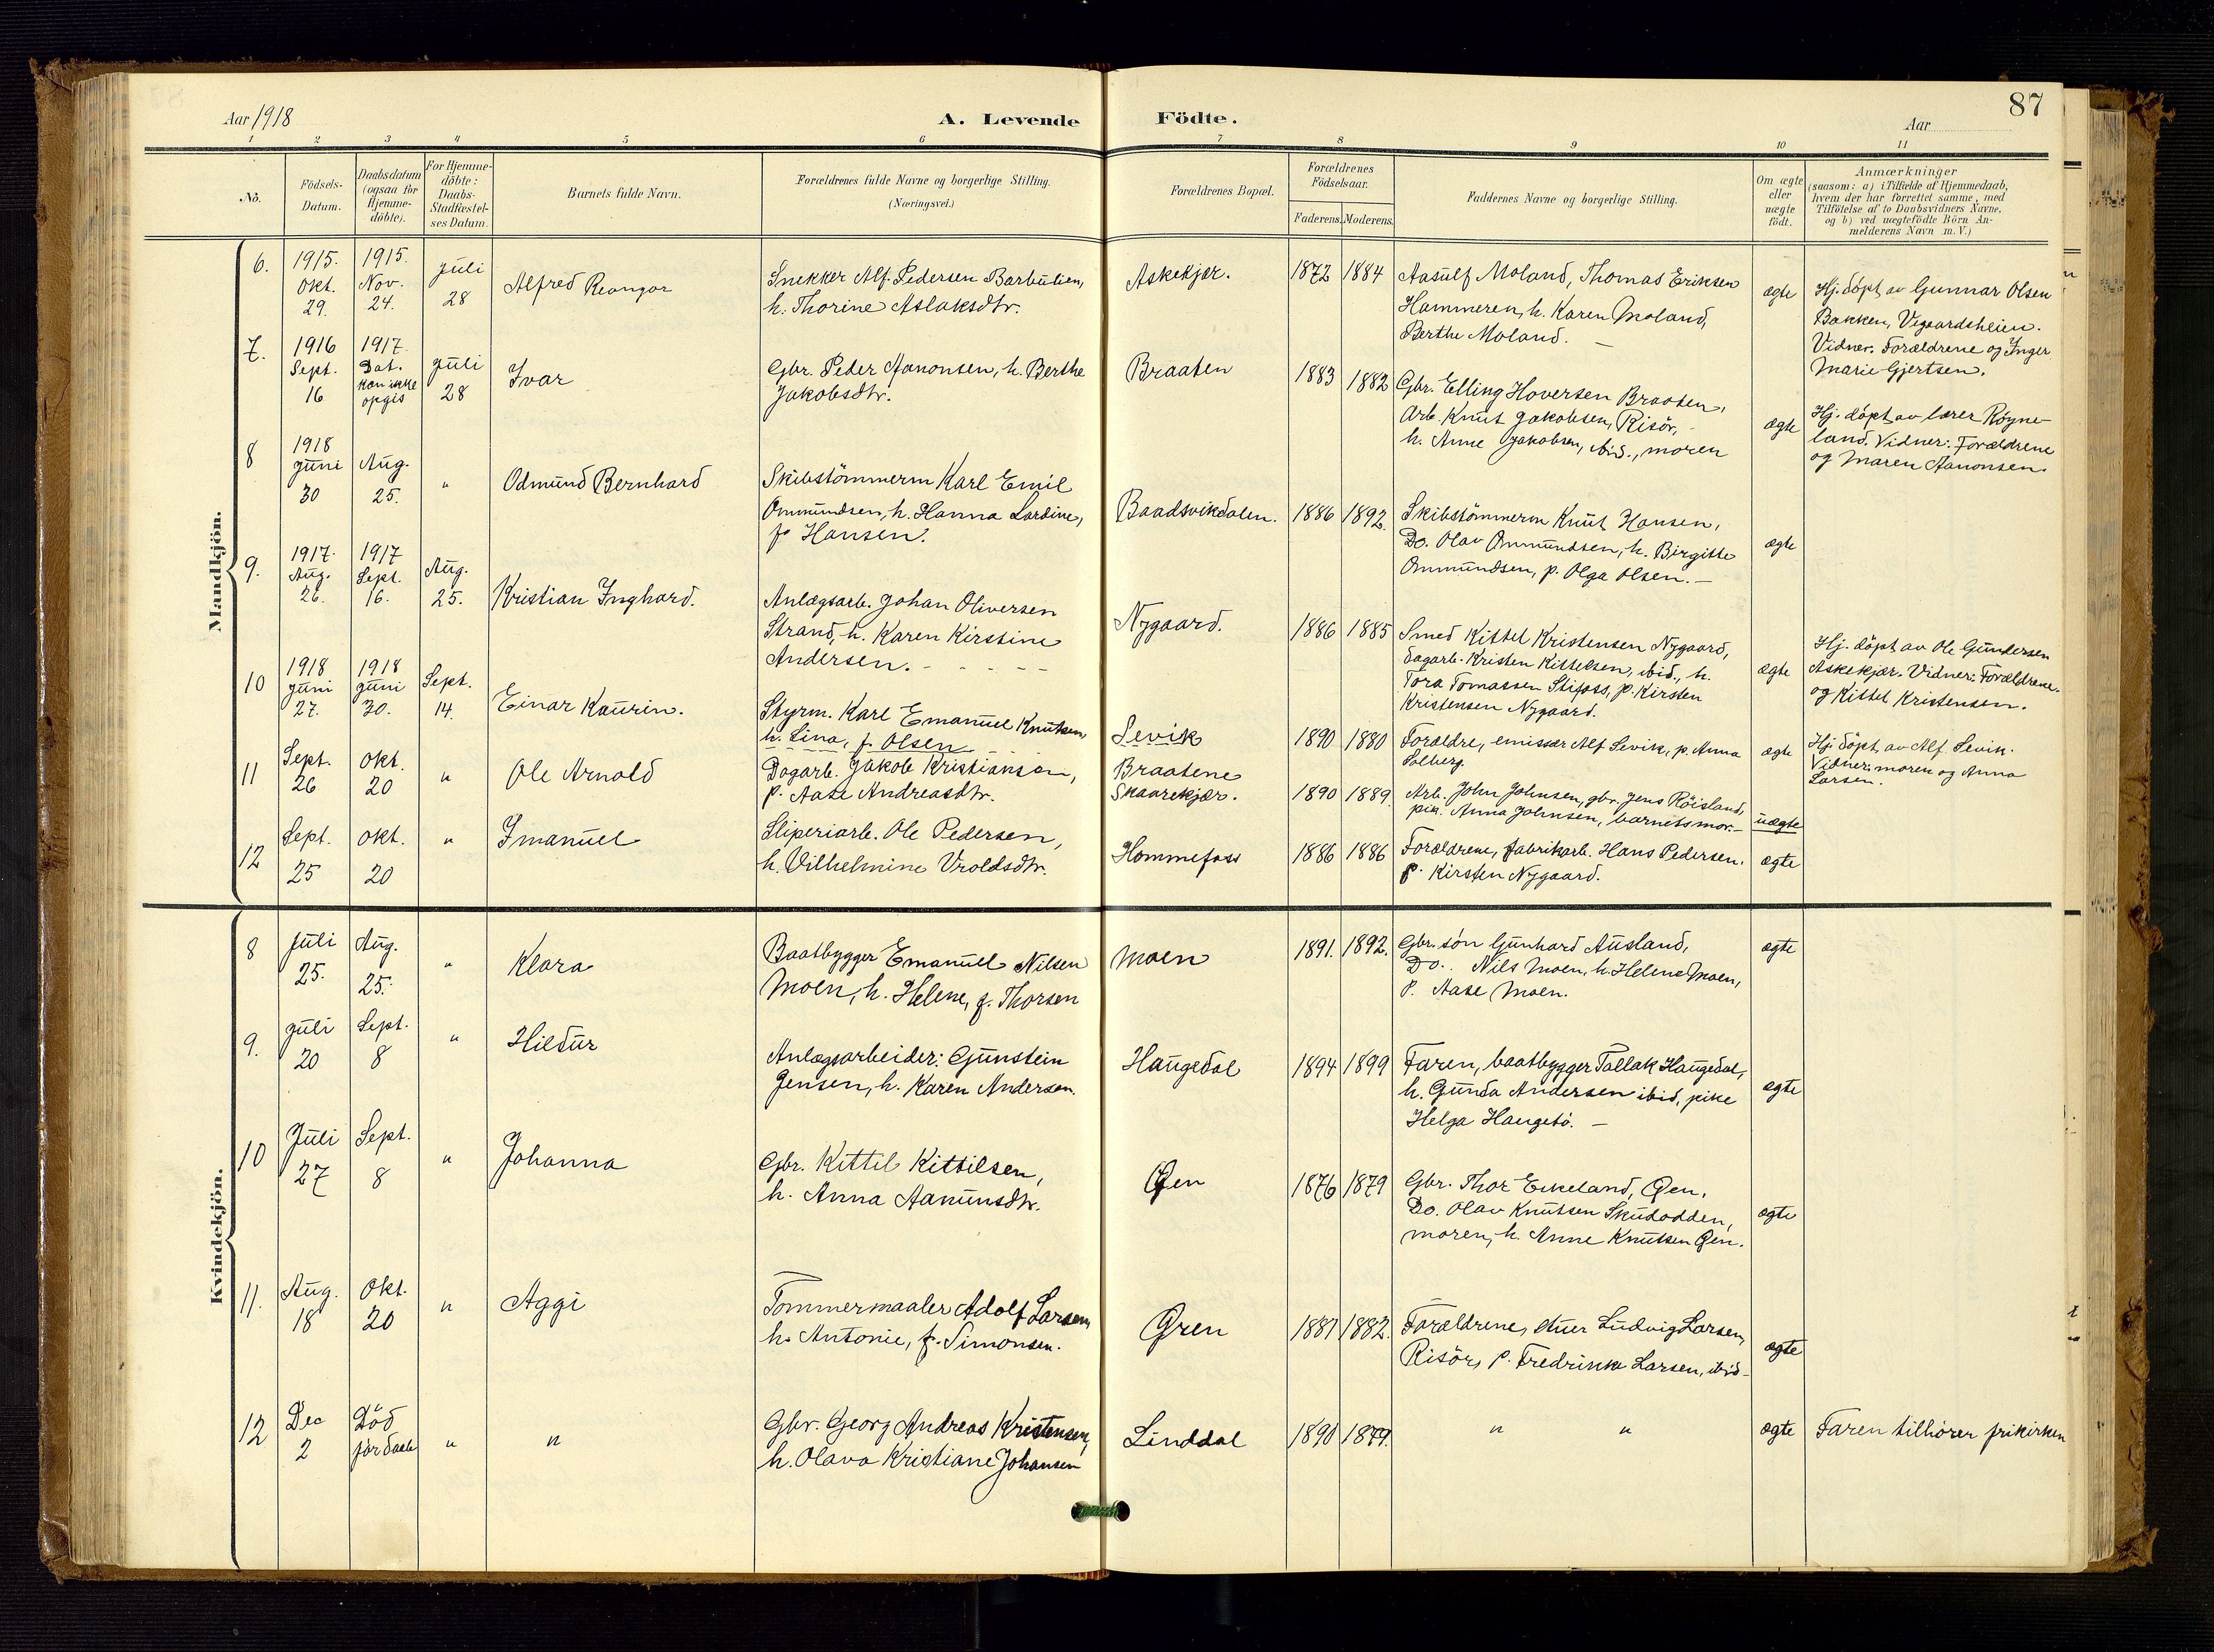 87
Aar 1918
A. Levende Födte.
Aar
1 2 3 4 5 6 7 8 9 10 11
Nö.
Födsels-
Datum.
Daabsdatum
(ogsaa for
Hjemme-
döbte).
For Hjemme-
döbte:
Daabs-
Stadfæstel-
ses Datum.
Barnets fulde Navn.
Forældrenes fulde Navne og borgerlige Stilling.
(Næringsvei.)
Forældrenes Bopæl.
Forældrenes
Födselsaar.
Faderens. Moderens.
Faddernes Navne og borgerlige Stilling.
Om ægte
eller
uægte
födt.
Anmærkninger
(saasom: a) i Tilfælde af Hjemmedaab,
hvem der har forrettet samme, med
Tilföielse af to Daabsvidners Navne,
og b) ved uegtefödte Börn An-
melderens Navn m. V.)
Mandkjön.
6.
1915.
Okt.
29.
1915.
Nov.
24.
Juli
28
Alfred
Snekker Alf. Pedersen Barbulien,
h. Thorine Aslaksdtr.
Askekjær.
1872 1884
Aasulf Moland, Thomas Eriksen
Hammeren, h. Karen Moland,
Berthe Moland. –
ægte
Hj. döpt av Gunnar Olsen
Bakken, Vegaardsheien.
Vidner: Forældrene og Inger
Marie Gjertsen.
7.
1916
Sept.
16
1917
Dat.
kan ikke
opgis
Juli
28
Ivar
Gbr. Peder Aanonsen, h. Berthe
Jakobsdtr.
Braaten
1883 1882
Gbr. Elling Hoversen Braaten,
Arb. Knut Jakobsen, Risör,
h. Anne Jakobsen, ibid., moren
ægte
Hj. döpt av lærer Röyne-
land. Vidner: Forældrene
og Maren Aanonsen.
8
1918
Juni
30
Aug.
25.
"
Odmund Bernhard
Skibstömmerm Karl Emil
Ommundsen, h. Hanna Lardine,
f. Hansen.
Baadsvikdalen.
1886 1892.
Skibstömmerm Knut Hansen,
Do. Olav Ommundsen, h. Birgitte
Ommundsen, p. Olga Olsen. –
ægte
9.
1917.
Aug.
26.
1917
Sept.
16.
Aug.
25.
Kristian Inghard.
Anlægsarb. Johan Oliversen
Strand, h. Karen Kirstine
Andersen. - - - - -
Nygaard.
1886 1885
Smed Kittel Kristensen Nygaard,
dagarb. Kristen Kittelsen, ibid., h.
Tora Tomassen Stifoss, p. Kirsten
Kristensen Nygaard.
ægte
Hj. döpt av Ole Gundersen
Askekjær. Vidner: Forældrene
og Kittel Kristensen.
10
1918
Juni
27.
1918
Juni
30.
Sept.
14.
Einar Kaurin.
Styrm. Karl Emanuel Knutsen,
h. Lina, f. Olsen
Sevik
1890 1880
Forældre, emissær Alf Sevik, p. Anna
Solberg.
ægte
Hj. döpt av Alf Sevik.
Vidner: moren og Anna
Larsen.
11
Sept.
26
Okt.
20
"
Ole Arnold
Dagarb. Jakob Kristiansen,
p. Aase Andreasdtr.
Braatene
Skaarekjær.
1890 1889.
Arb. John Johnsen, gbr. Jens Röisland,
pik. Anna Johnsen, barnets mor. –
uægte
12
Sept.
25
Okt.
20
"
Imanuel
Sliperiarb. Ole Pedersen,
h. Vilhelmine Vroldsdtr.
Hommefoss
1886 1886
Forældrene, fabrikarb. Hans Pedersen,
p. Kirsten Nygaard.
ægte
Kvindekjön.
8
Juli
25.
Aug.
25.
"
Klara
Baatbygger Emanuel Nilsen
Moen, h. Helene, f. Thorsen
Moen
1891. 1892.
Gbr. sön Gunhard Ausland,
Do. Nils Moen, h. Helene Moen,
p. Aase Moen.
ægte
9.
Juli
20
Sept.
8
"
Hildur
Anlægsarbeider: Gunstein
Jensen, h. Karen Andersen.
Haugedal
1894 1899
Faren, baatbygger Tallak Haugedal,
h. Gunda Andersen ibid, pike
Helga Haugetö. –
ægte
10
Juli
27
Sept.
8
"
Johanna
Gbr. Kittil Kittilsen,
h. Anna Aanunsdtr.
Øen
1876 1879
Gbr. Thor Eikeland, Øen,
Do. Olav Knutsen Skudodden,
moren, h. Anne Knutsen Øen.
ægte
11.
Aug.
18
Okt.
20
"
Aggi
Tömmermaaler Adolf Larsen,
h. Antonie, f. Simonsen.
Gren
1881 1882.
Forældrene, Ludvig Larsen,
Risör, p. Fredrikke Larsen, ibid-
ægte
12
Dec
2
Död
för daab
"
"
Gbr. Georg Andreas Kristensen,
h. Olava Kristiane Johansen
Linddal
1890 1879.
" "
ægte
Faren tilhörer frikirken